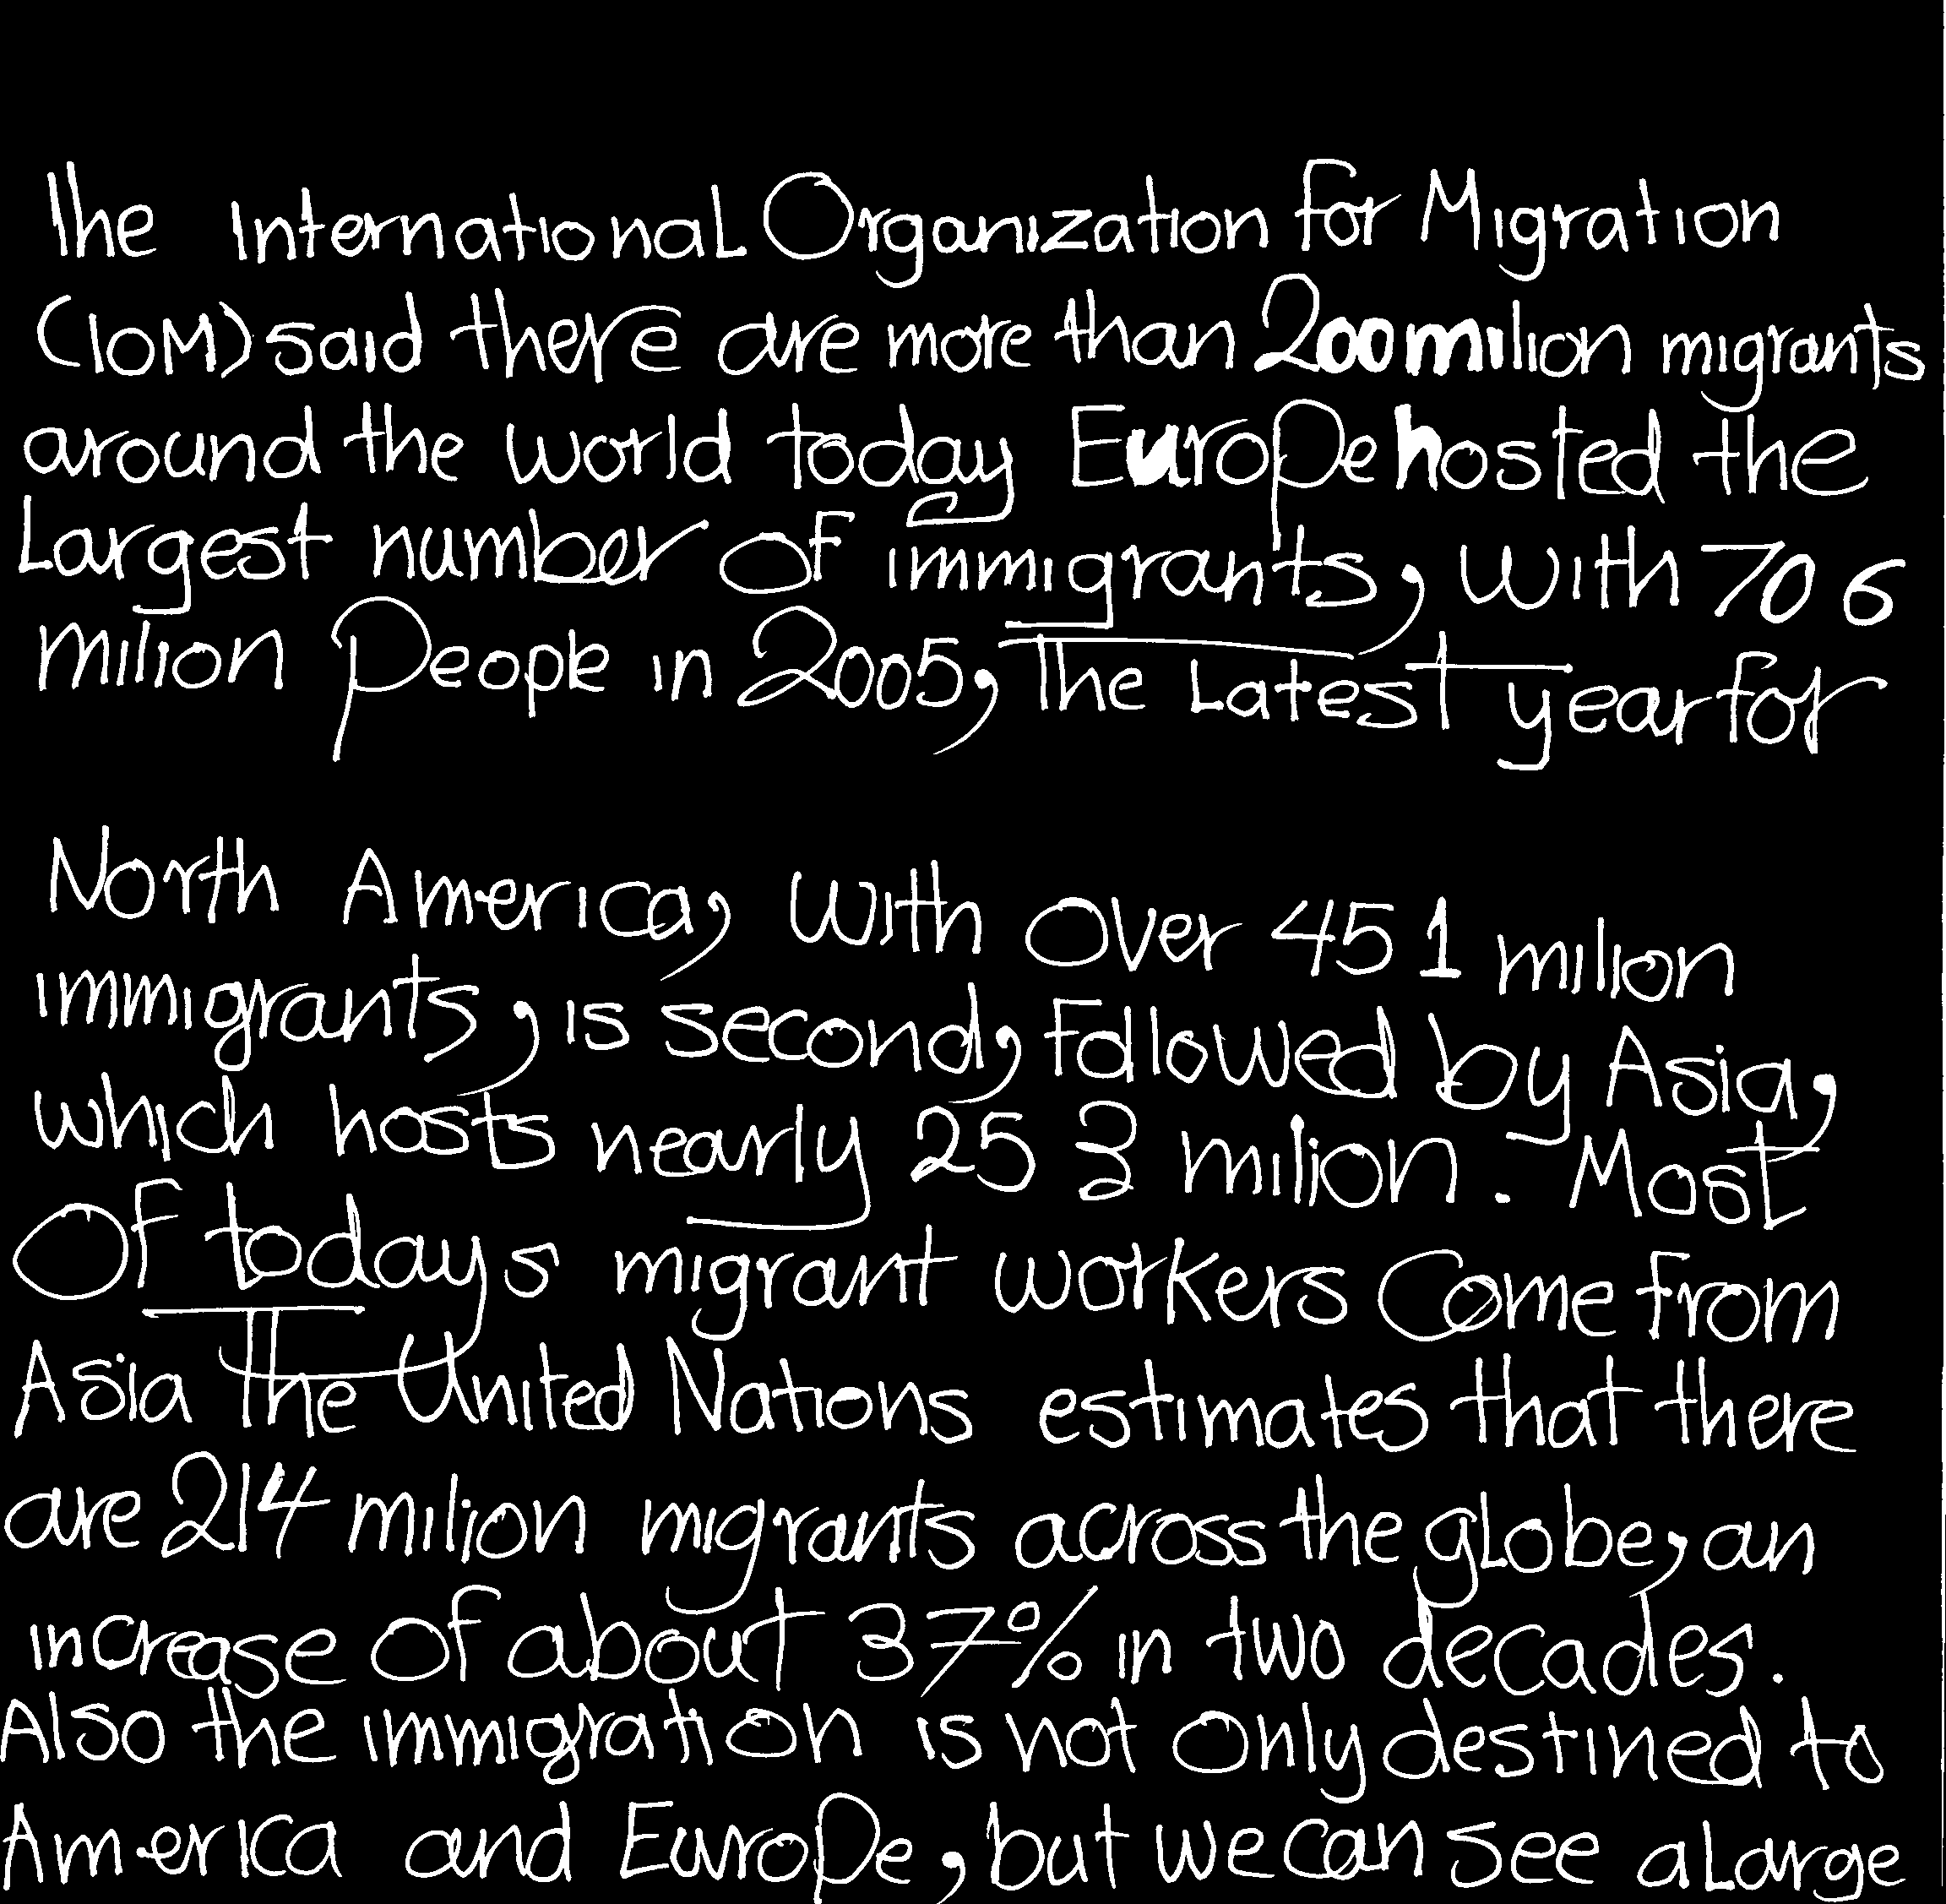 The International Organization for Migration
(IOM) said there are more than 200 milion migrants
around the world today Europe hosted the
Largest number of immigrants, with 70 6
milion People in 2005, The Latest year for
North America, With over 45 1 milion
immigrants, is second, followed by Asia,
which hosts nearly 25 3 milion. Most
Of todays migrant workers Come from
Asia The United Nations estimates that there
are 214 milion migrants across the globe, an
increase of about 37% in two decades.
Also the immigration is not only destined to
America and Europe, but we can see a Large